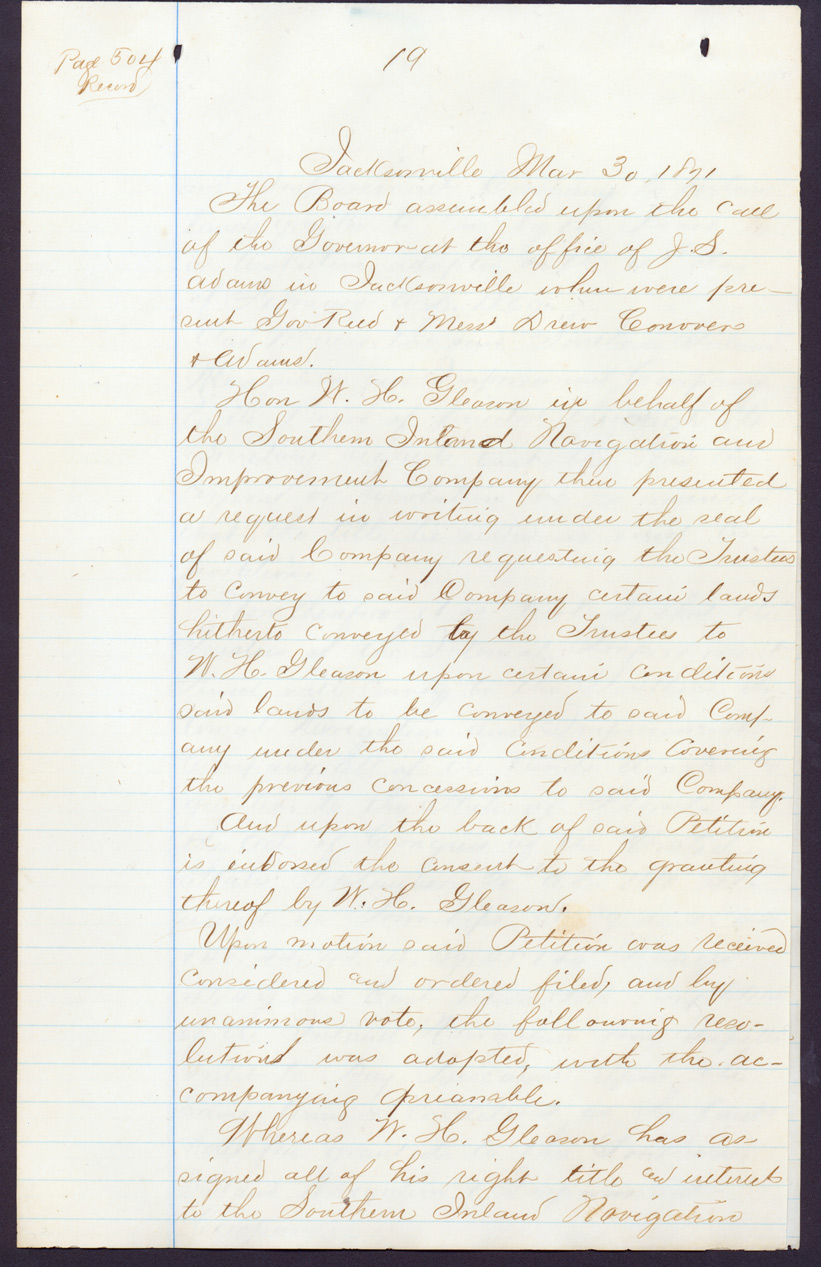 Page 504
Record
19
Jacksonville Mar 30, 1871
The Board assembled upon the call
of the Governor at the office of J. S.
Adams in Jacksonville when were pre-
sent Gov Reed & Messrs Drew Conovers
& Adams.
Hon W. H. Gleason in behalf of
the Southern Inland Navigation and
Improvement Company then presented
a request in writing under the seal
of said Company requesting the Trustees
to convey to said Company certain lands
hitherto conveyed by the Trustees to
W. H. Gleason upon certain conditions
said lands to be conveyed to said Comp-
any under the said conditions covering
the previous concessions to said Company.
And upon the back of said Petition
is indorsed the consent to the granting
thereof by W. H. Gleason.
Upon motion said Petition was received
considered and ordered filed, and by
unanimous vote, the following reso-
lutions was adopted, with the ac-
companying preamble.
Whereas W. H. Gleason has as-
signed all of his right title and interest
to the Southern Inland Navigation